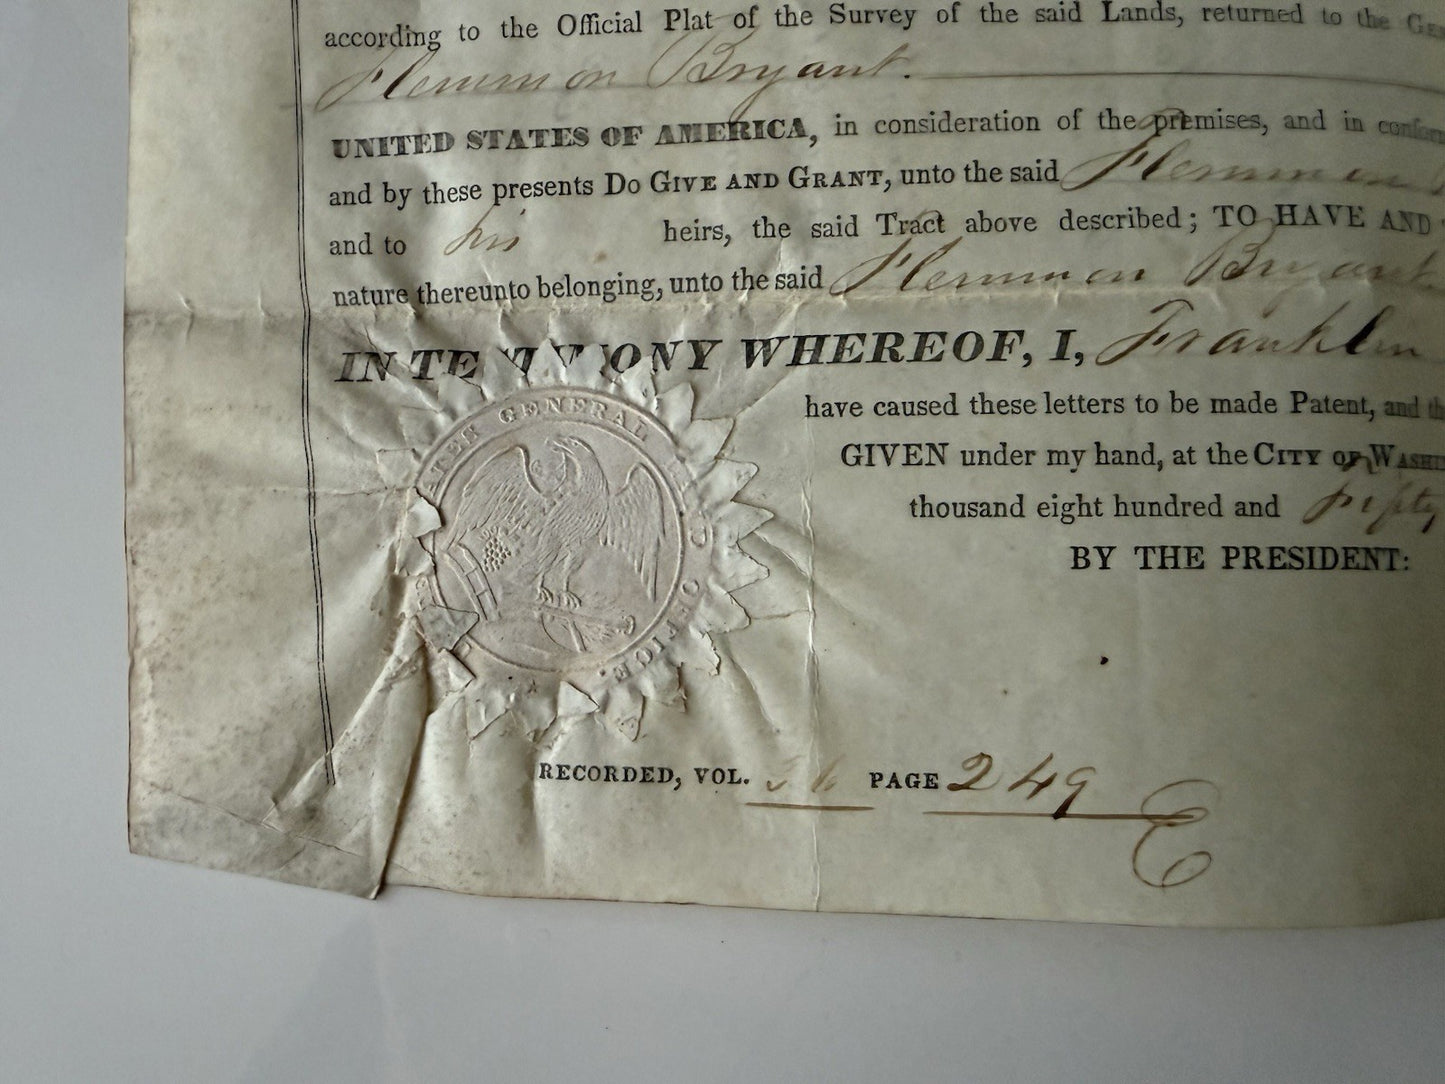 according to the Official Plat of the Survey of the said Lands, returned to the GEN
Flemmon Bryant.
UNITED STATES OF AMERICA, in consideration of the premises, and in conform
and by these presents DO GIVE AND GRANT, unto the said Flemmon
and to his heirs, the said Tract above described; TO HAVE AND
nature thereunto belonging, unto the said Flemmon Bryant
IN TESTIMONY WHEREOF, I, Franklin
have caused these letters to be made Patent, and the
GIVEN under my hand, at the CITY OF WASHI
thousand eight hundred and fifty
BY THE PRESIDENT:
GENERAL
OFFICE.
RECORDED, VOL. PAGE 249